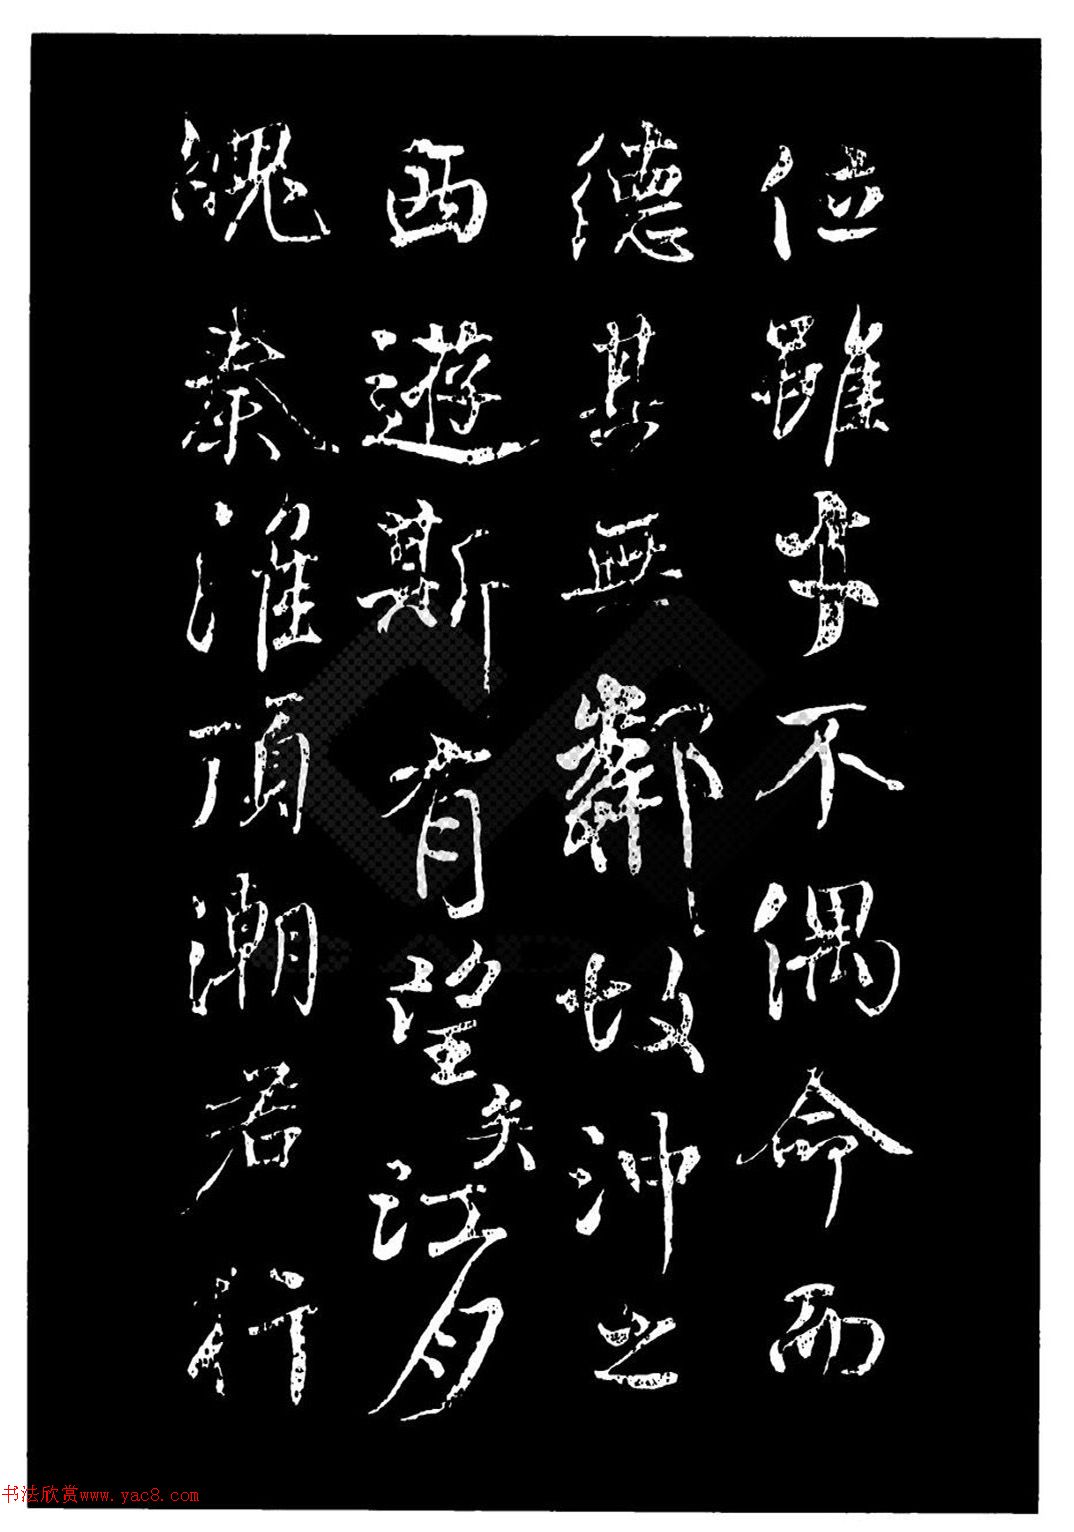 位雖才不偶命而
德其無鄰故沖之
西遊斯有望矣江月
魄秦淮頂潮若行
书法欣赏www.yac8.com